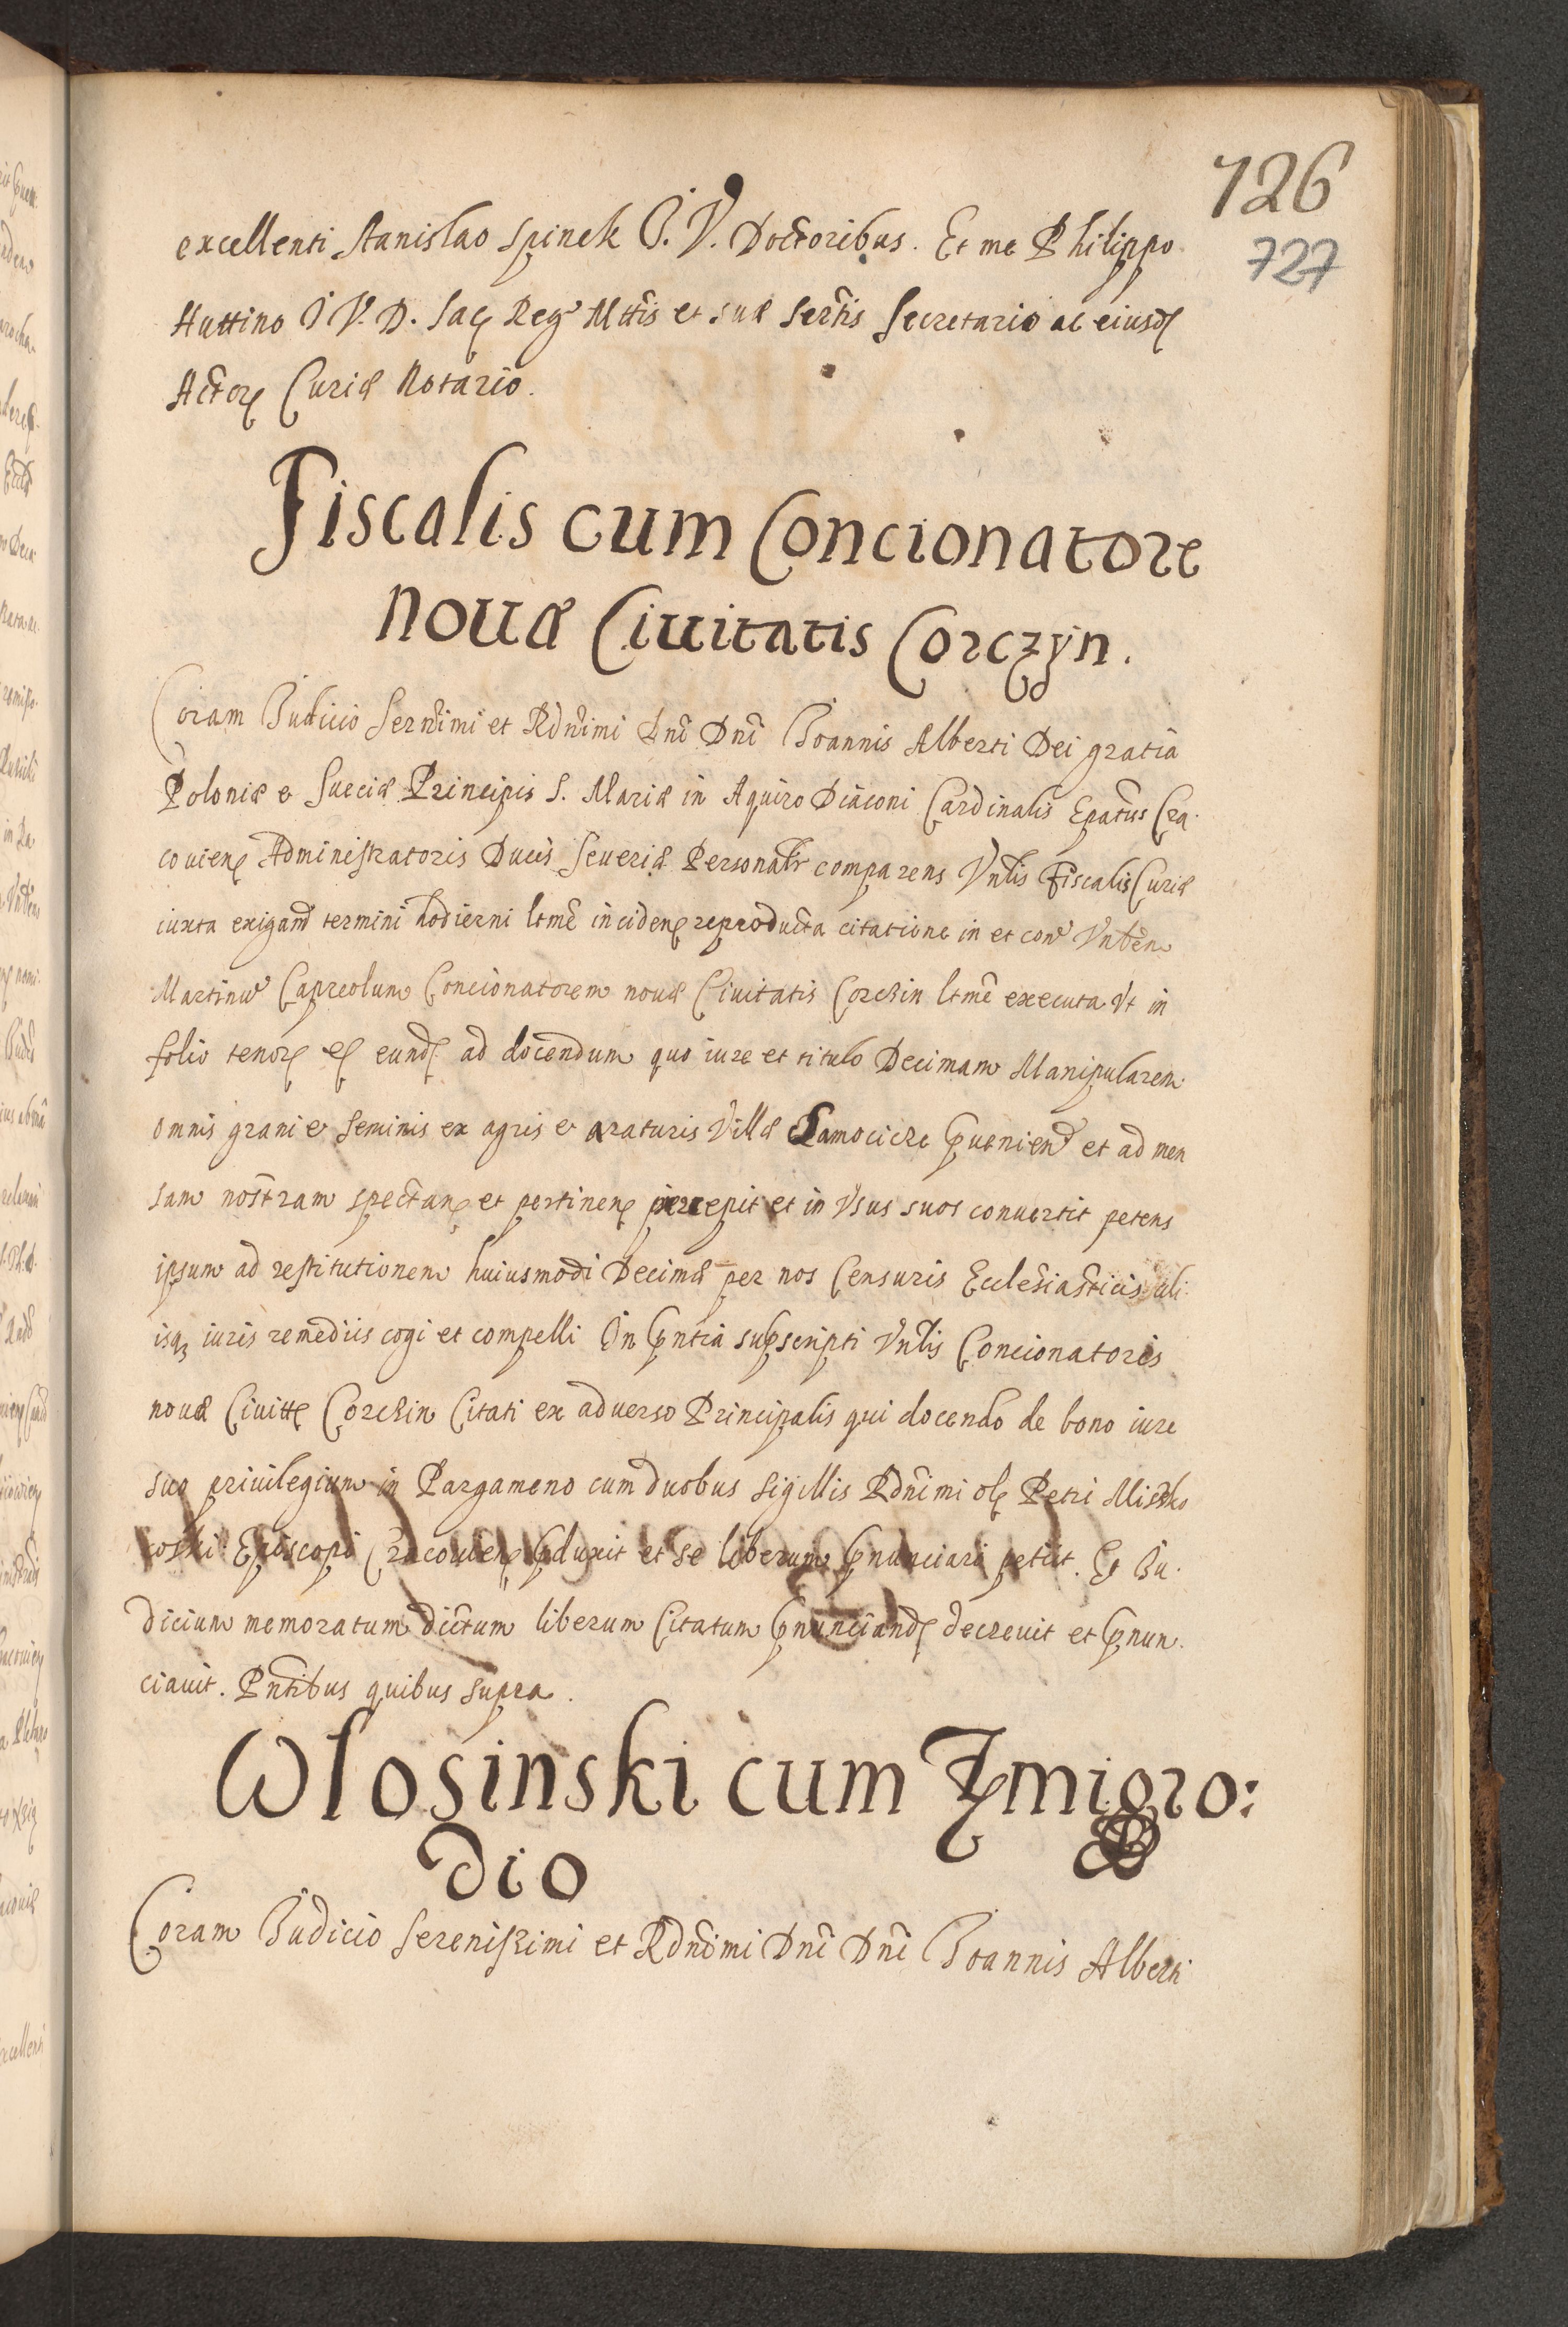 126
727
excellenti Stanislao Spinek J. V. Doctoribus. Et me Philippo
Huttino J V. D. Sacr Reg Mttis et suæ Sertis Secretario ac eiusd
Actor Curiæ Notario.
Fiscalis cum Concionatore
nouæ Ciuitatis Corczÿn.
Coram Judicio Sernimi et Rdnimi Dni Dni Joannis Alberti Dei gratia
Poloniæ et Sueciæ Principis S. Mariæ in Aquiro Diaconi Cardinalis Epatus Cra-
couien Administratoris Ducis Seueriæ Personalr comparens Vnlis Fiscalis Curiæ
iuxta exigam termini hodierni ltme inciden reproducta citatione in et con Vnblem
Martinu Capreolum Concionatorem nouæ Ciuitatis Corckin ltme executa Vt in
folio tenor eund ad docendum quo iure et titulo Decimam Manipularem
omnis grani et Seminis ex agris et araturis Villæ puenien et ad men
sam nostram spectan et pertinen percepit et in Vsus suos conuertit petens
ipsum ad restitutionem huiusmodi Decimæ per nos Censuris Ecclesiasticis ali-
isq iuris remediis cogi et compelli In pntia subscripti Vnlis Concionatoris
nouæ Ciuitt Corckin Citati ex aduerso Principalis qui docendo de bono iure
suo priuilegium in Pargameno cum duobus Sigillis Rdnimi ol Petri Miszko
coski Episcopi Cracouien pduxit et se liberum pnunciari petiit. Et Ju-
dicium memoratum dictum liberum Citatum pnunciand decreuit et pnun-
ciauit. Pntibus quibus supra.
Wlosinski cum Zmigro:
dio
Coram Judicio Serenissimi et Rdnimi Dni Dni Joannis Alberti